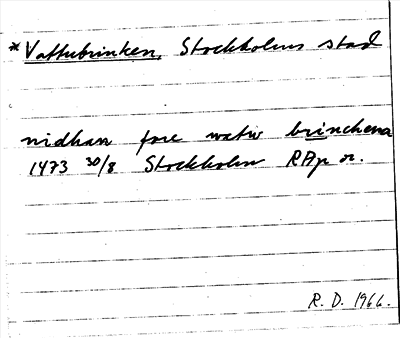 *Vattubrinken, Stockholms stad
nidhan fore watw brinchena
1473 30/8 Stockholm RAp or.
R. D. 1966.